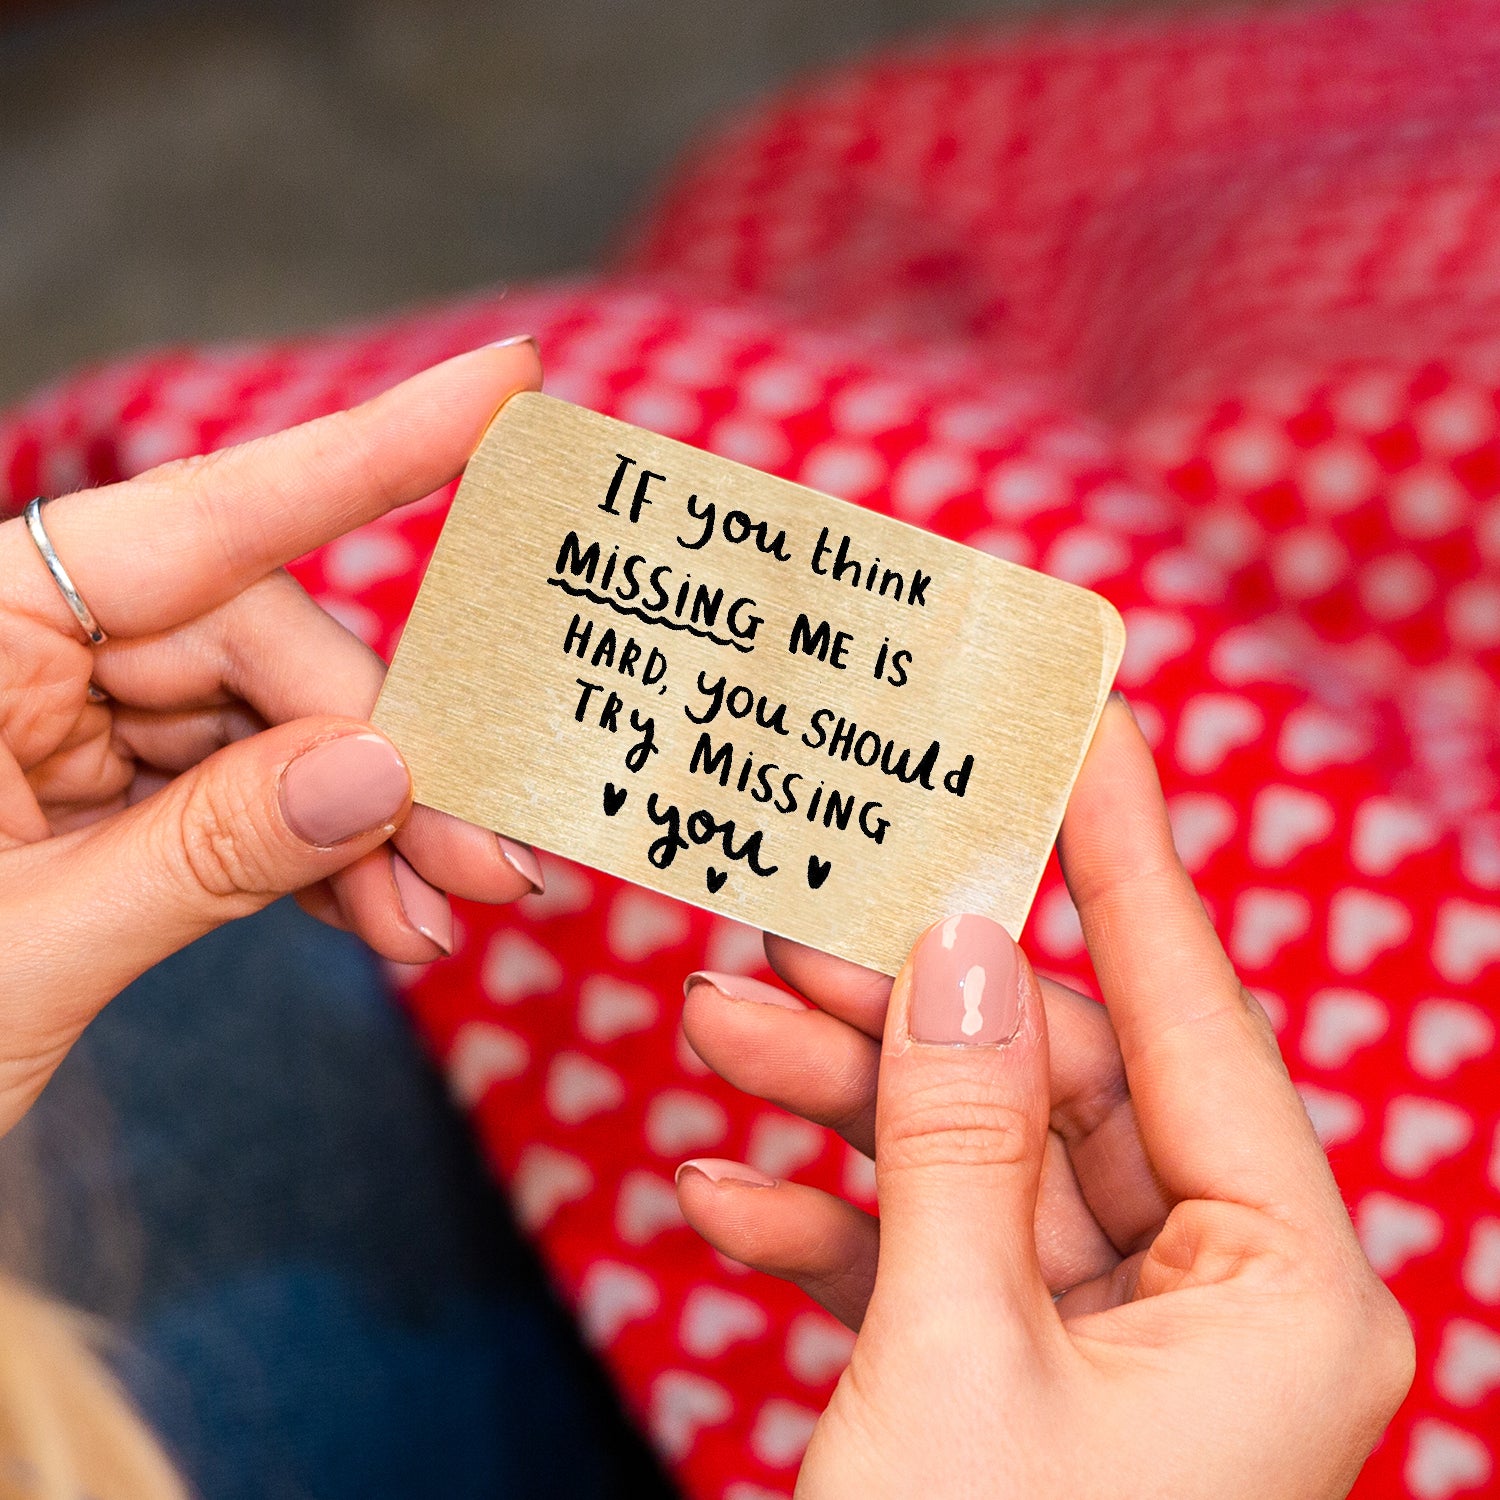 IF you think
MiSSiNG ME iS
HARD, you SHOuld
TRy MiSSiNG
you